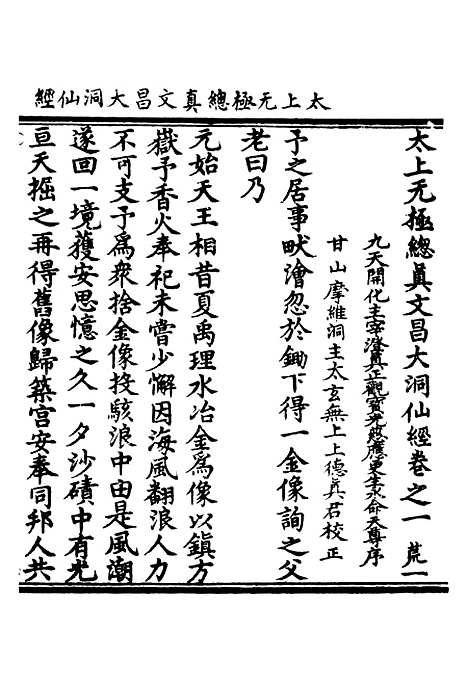 太上无極總真文昌大洞仙經
太上无極總真文昌大洞仙經卷之一 荒一
九天開化主宰澄真正觀寶光慈應更生永命天尊序
甘山摩維洞主太玄無上上德真君校正
予之居事畎澮忽於鋤下得一金像詢之父
老曰乃
元始天王相昔夏禹理水冶金爲像以鎮方
嶽予香火奉祀未嘗少懈因海風翻浪人力
不可支予爲衆捨金像投駭浪中由是風潮
遂回一境獲安思憶之久一夕沙磧中有光
亘天掘之再得舊像歸築宫安奉同邦人共